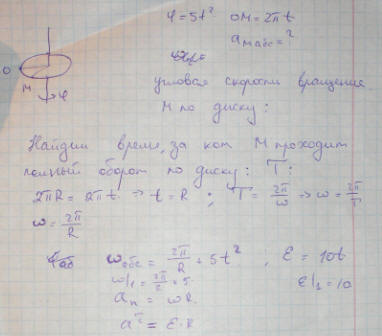 φ = 5t² OM = 2πt
aₘ абс = ?
O
M
φ
угловая скорость вращения
M по диску:
Найдём время, за кот M проходит
полный оборот по диску: T:
2πR = 2πt → t = R ; T = 2π/ω → ω = 2π/T
ω = 2π/R
ω абс = 2π/R + 5t² ; ε = 10t
ω|₁ = 2π/R + 5 ε|₁ = 10
aₙ = ωR
a^τ = ε·R